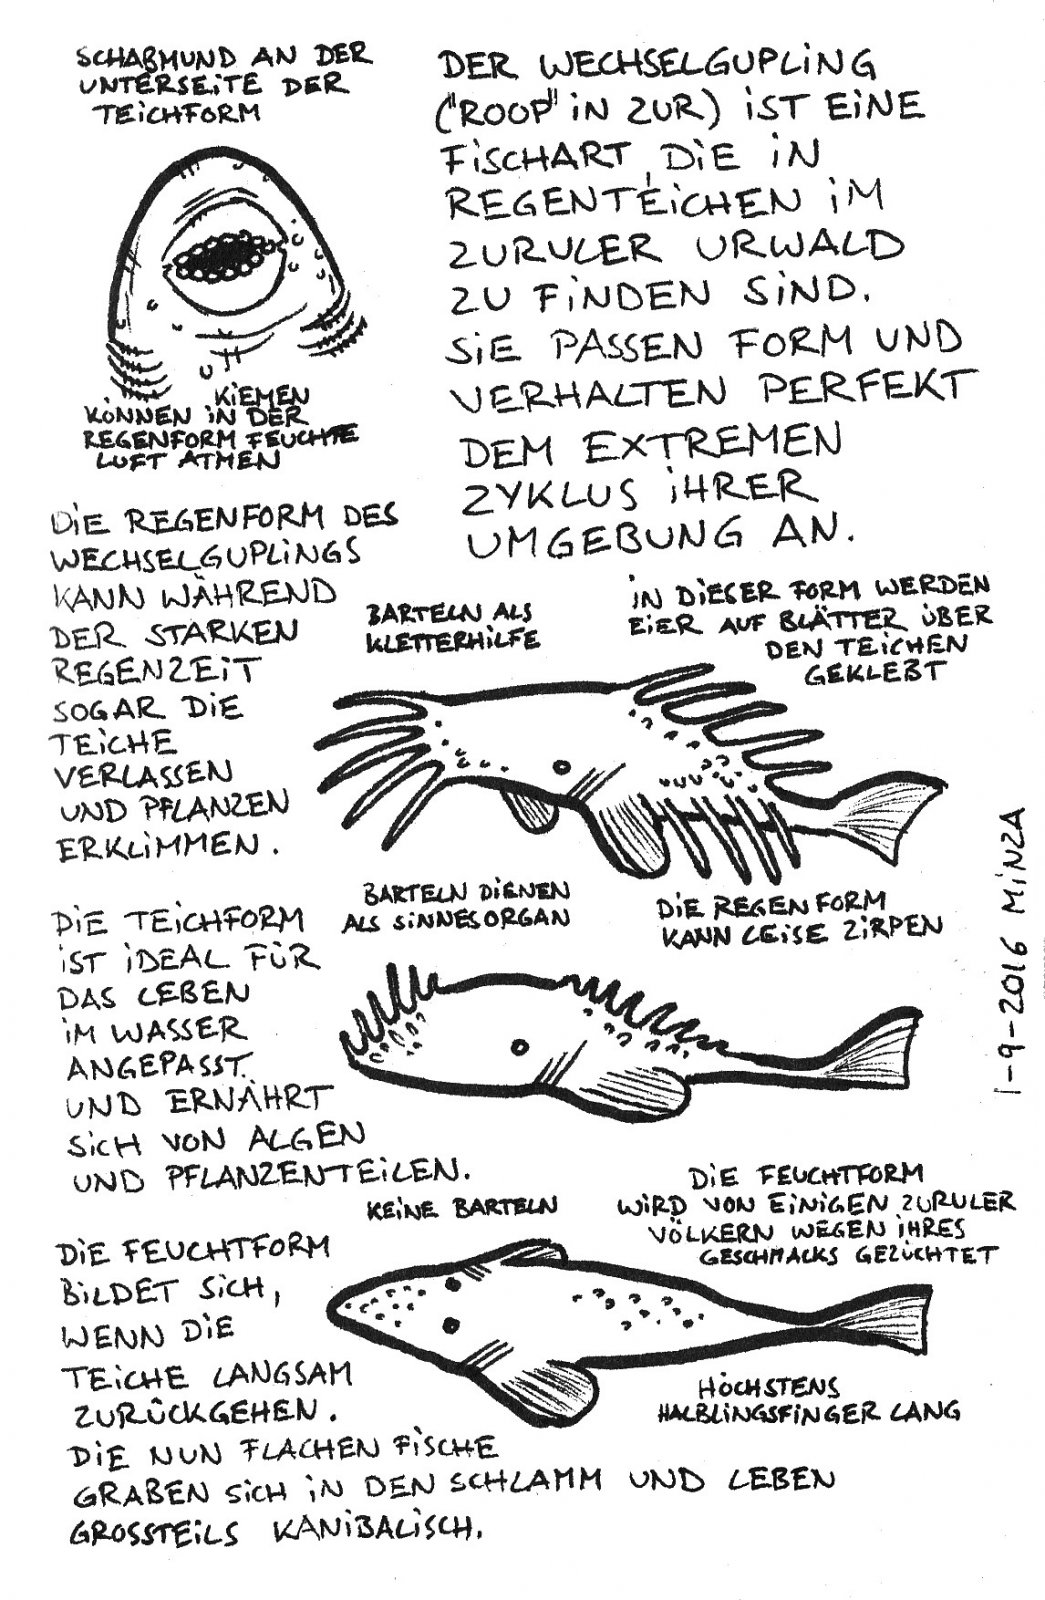 SCHABMUND AN DER
UNTERSEITE DER
TEICHFORM
DER WECHSELGUPLING
("ROOP" IN ZUR) IST EINE
FISCHART, DIE IN
REGENTEICHEN IM
ZURULER URWALD
ZU FINDEN SIND.
SIE PASSEN FORM UND
VERHALTEN PERFEKT
DEM EXTREMEN
ZYKLUS IHRER
UMGEBUNG AN.
KIEMEN
KÖNNEN IN DER
REGENFORM FEUCHTE
LUFT ATMEN
DIE REGENFORM DES
WECHSELGUPLINGS
KANN WÄHREND
DER STARKEN
REGENZEIT
SOGAR DIE
TEICHE
VERLASSEN
UND PFLANZEN
ERKLIMMEN.
BARTELN ALS
KLETTERHILFE
IN DIESER FORM WERDEN
EIER AUF BLÄTTER ÜBER
DEN TEICHEN
GEKLEBT
DIE REGENFORM
KANN LEISE ZIRPEN
DIE TEICHFORM
IST IDEAL FÜR
DAS LEBEN
IM WASSER
ANGEPASST.
UND ERNÄHRT
SICH VON ALGEN
UND PFLANZENTEILEN.
BARTELN DIENEN
ALS SINNESORGAN
DIE FEUCHTFORM
BILDET SICH,
WENN DIE
TEICHE LANGSAM
ZURÜCKGEHEN.
DIE NUN FLACHEN FISCHE
GRABEN SICH IN DEN SCHLAMM UND LEBEN
GROSSTEILS KANIBALISCH.
KEINE BARTELN
DIE FEUCHTFORM
WIRD VON EINIGEN ZURULER
VÖLKERN WEGEN IHRES
GESCHMACKS GEZÜCHTET
HÖCHSTENS
HALBLINGSFINGER LANG
1-9-2016 MINZA